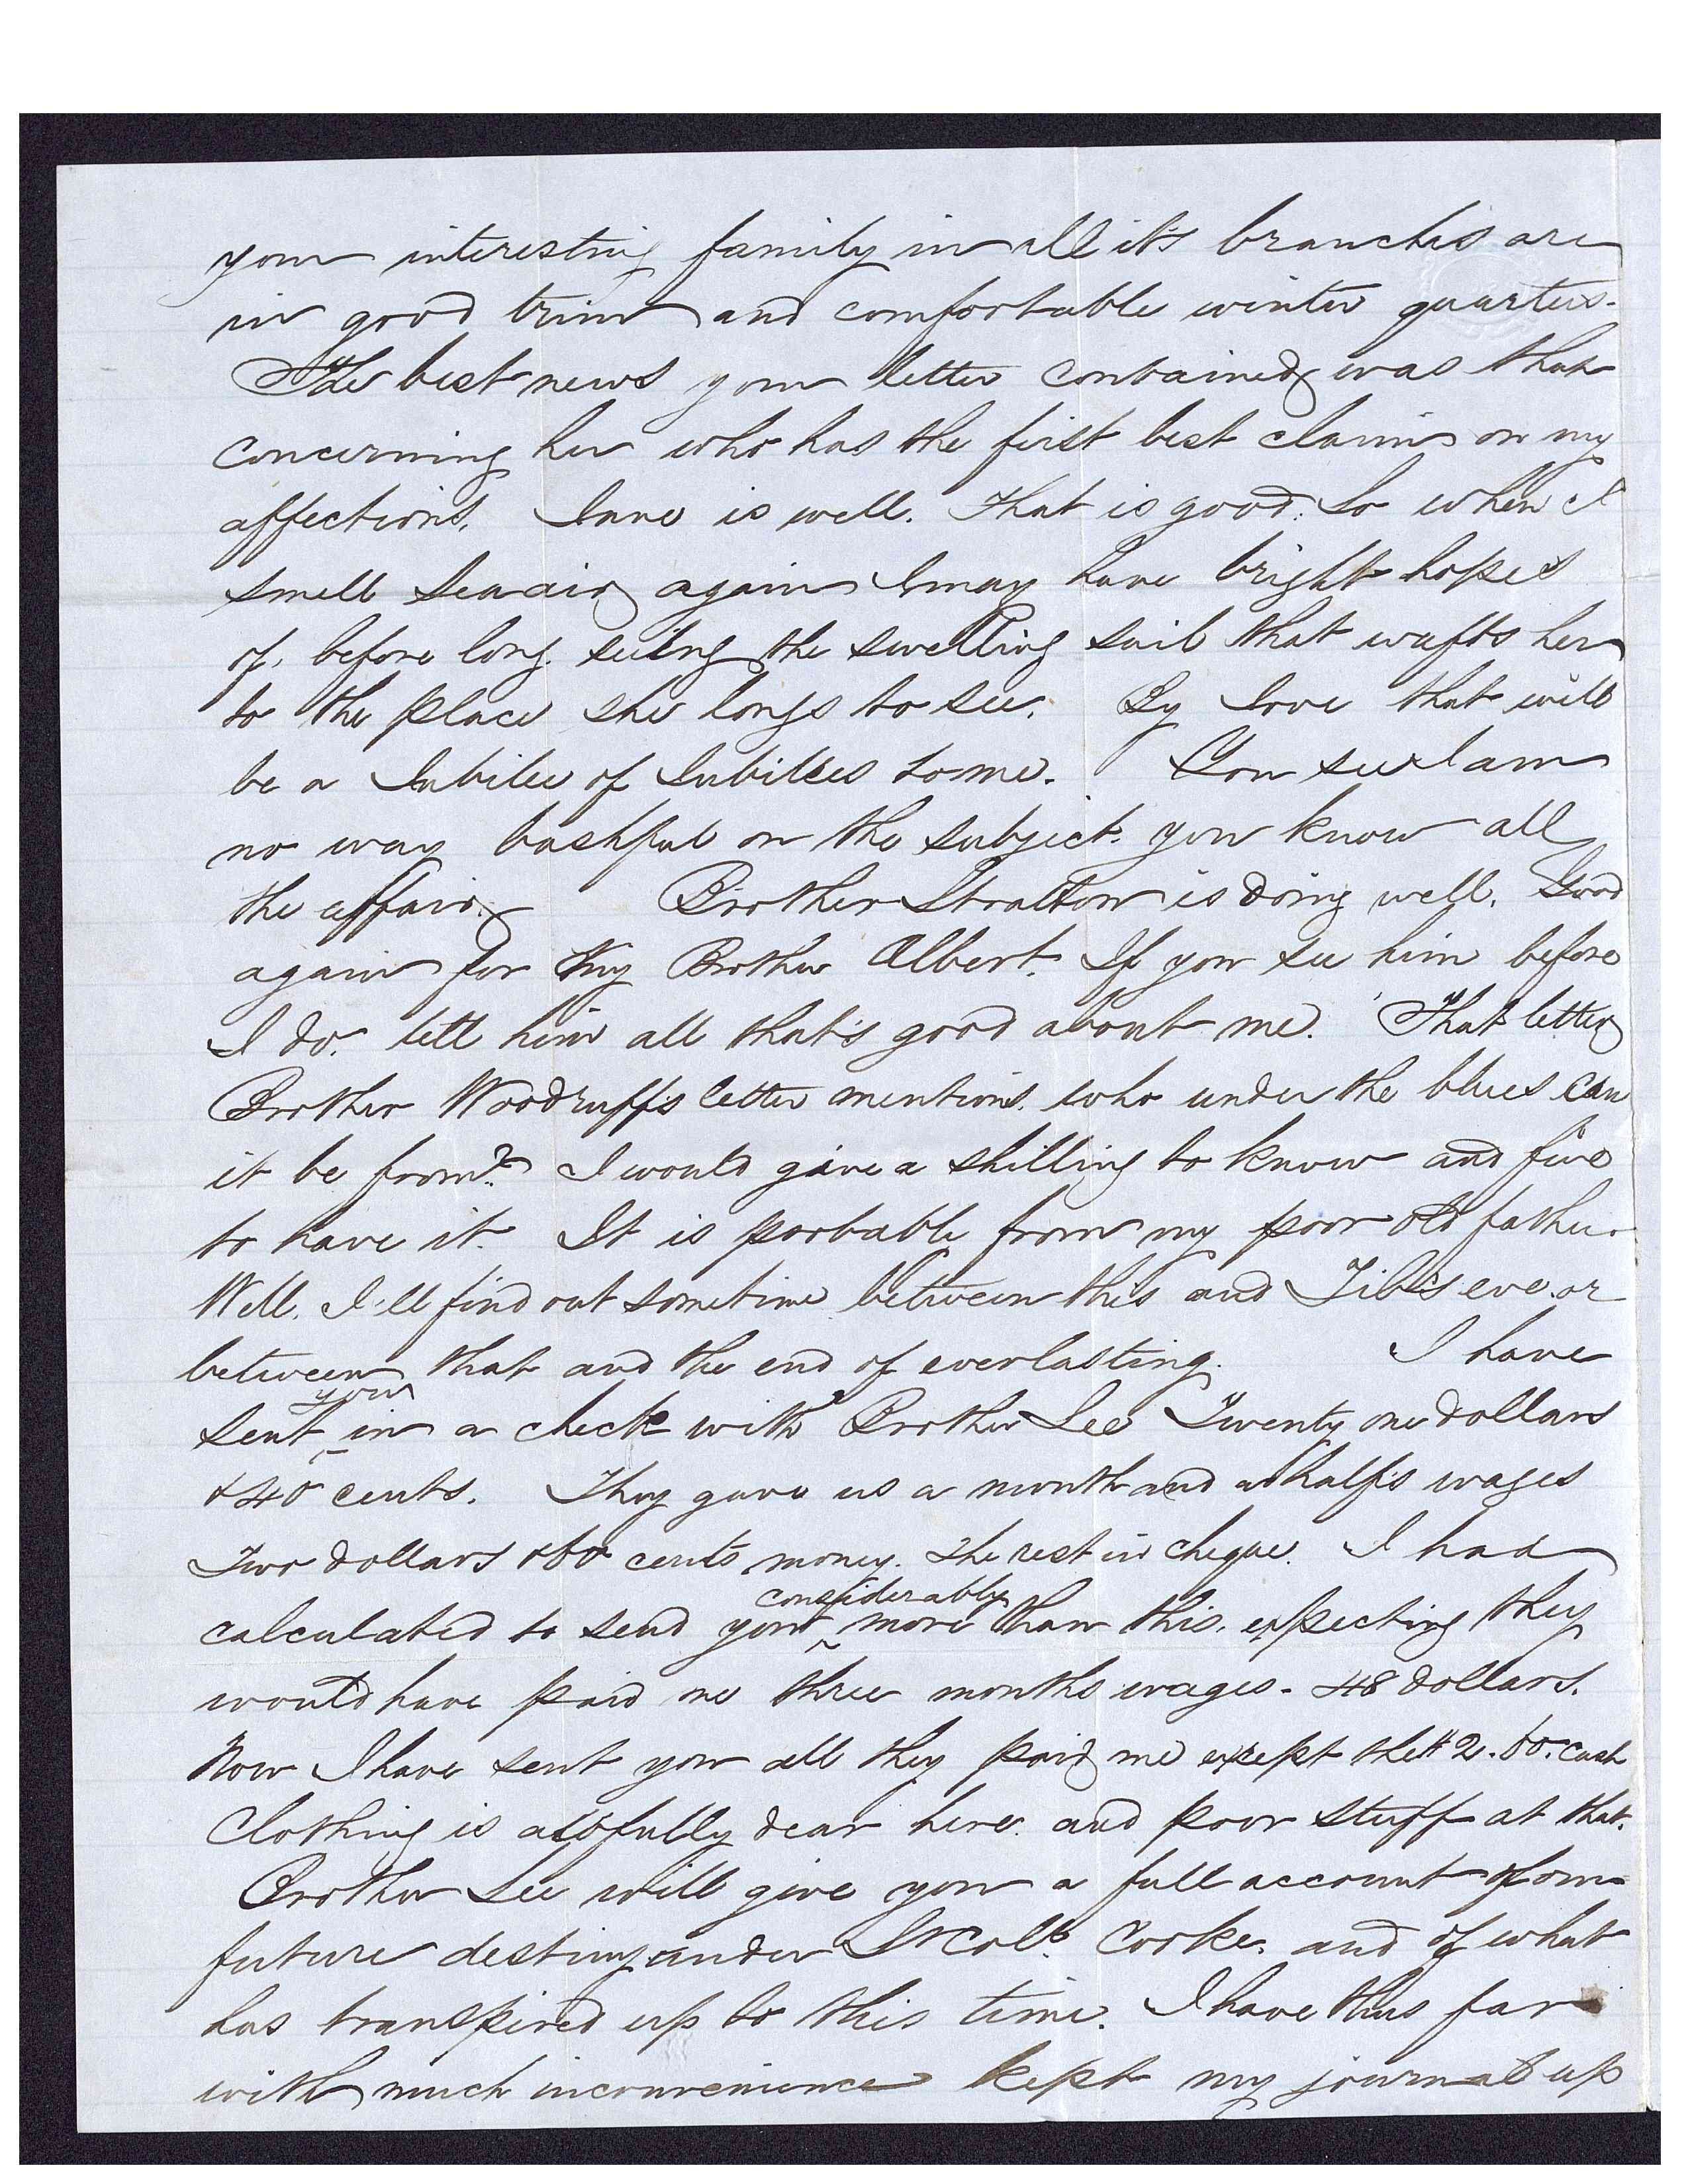 your interesting family in all it's branches are
in good trim and comfortable winter quarters.
The best news your letter contained, was that
concerning her who has the first best claims on my
affections. Jane is well. That is good. So when I
smell sea air again I may have bright hopes
of, before long, seeing the swelling sail that wafts her
to the place she longs to see. By Jove that will
be a Jubilee of Jubilees to me. You see I am
no way bashful on the subject. you know all
the affair. Brother Stratton is doing well. Good
again for my Brother Albert. If you see him before
I do. tell him all that's good about me. That letter
Brother Woodruff's letter mentions. who under the blues can
it be from? I would give a shilling to know and five
to have it. It is porbable from my poor old father.
Well. I'll find out sometime between this and Tib's eve. or
between that and the end of everlasting. I have
sent you in a check with Brother Lee Twenty one dollars
& 40 cents. They gave us a month and a half's wages
Two dollars & 60 cents money. The rest in cheque. I had
calculated to send you considerably more than this. expecting they
would have paid me three months wages - 48 dollars.
Now I have sent you all they paid me exsept the $2.60. cash
Clothing is awfully dear here. and poor stuff at that.
Brother Lee will give you a full account of our
future destiny under Lt Coll. Cooke. and of what
has transpired up to this time. I have thus far
with much inconvenience kept my journal up